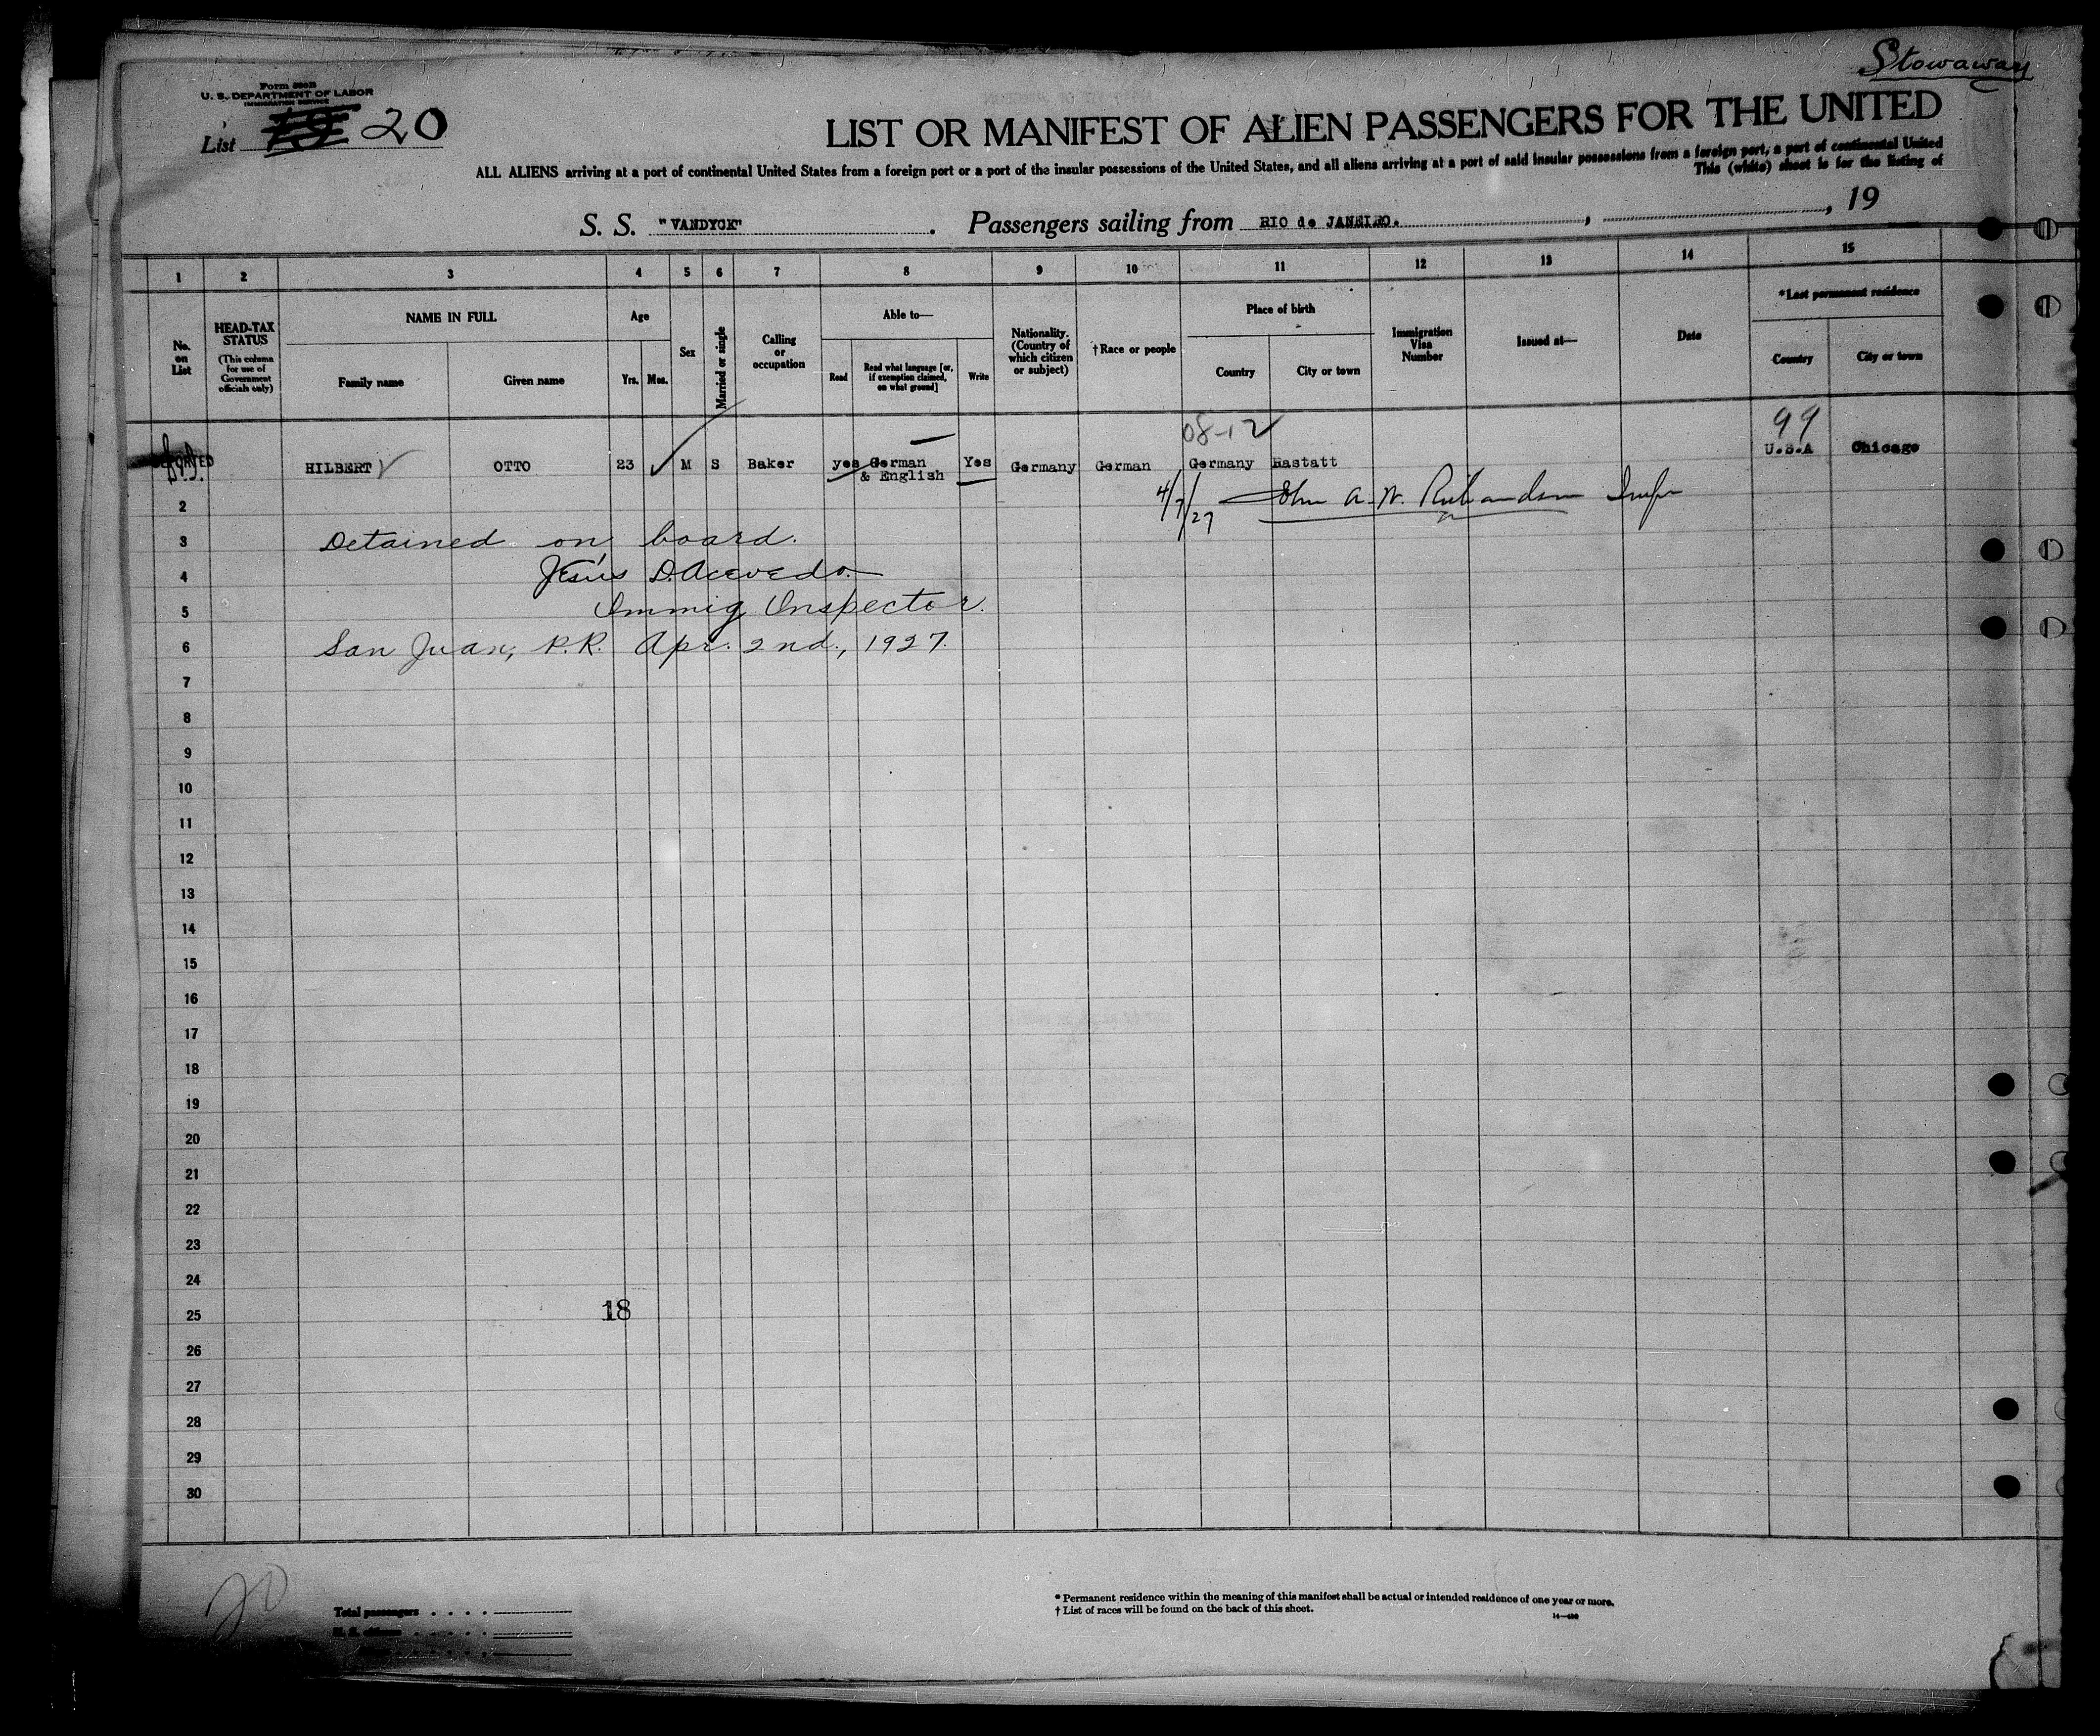 Stowaway
Form 500B
U. S. DEPARTMENT OF LABOR
IMMIGRATION SERVICE
List 19 20
LIST OR MANIFEST OF ALIEN PASSENGERS FOR THE UNITED
ALL ALIENS arriving at a port of continental United States from a foreign port or a port of the insular possessions of the United States, and all aliens arriving at a port of said insular possessions from a foreign port, a part of continental United
This (white) sheet is for the listing of
S. S. "VANDYCK". Passengers sailing from RIO de JANEIRO., , 19
1 2 3 4 5 6 7 8 9 10 11 12 13 14 15
No. on List
HEAD-TAX STATUS (This column for use of Government officials only)
NAME IN FULL
Family name
Given name
Age
Yrs. Mos.
Sex
Married or single
Calling or occupation
Able to—
Read
Read what language [or, if exemption claimed, on what ground]
Write
Nationality. (Country of which citizen or subject)
†Race or people
Place of birth
Country
City or town
Immigration Visa Number
Issued at—
Date
*Last permanent residence
Country
City or town
08-12 99
DEPORTED HILBERT OTTO 23 M S Baker yes German & English Yes Germany German Germany Rastatt U.S.A Chicago
4/7/27 John A. W. Richardson Inspr
2
3 Detained on board.
4 Jesús D. Acevedo.
5 Immig Inspector.
6 San Juan, P.R. Apr. 2nd., 1927.
7
8
9
10
11
12
13
14
15
16
17
18
19
20
21
22
23
24
25 18
26
27
28
29
30
20
Total passengers
U. S. citizens
* Permanent residence within the meaning of this manifest shall be actual or intended residence of one year or more.
† List of races will be found on the back of this sheet.